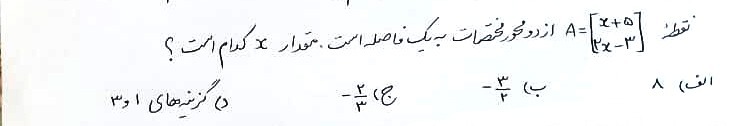 نقطهٔ A = [x+۵ / ۲x−۳] از دو محور مختصات به یک فاصله است. مقدار x کدام است؟
الف) ۸  ب) −۳/۲  ج) −۲/۳  د) گزینه‌های ۱ و ۳